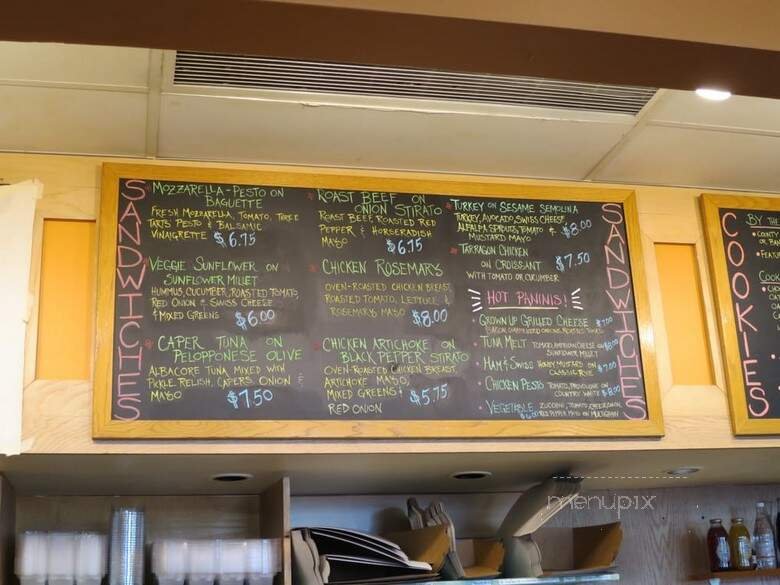 SANDWICHES
MOZZARELLA-PESTO ON
BAGUETTE
FRESH MOZZARELLA, TOMATO, THREE
TARTS PESTO & BALSAMIC
VINAIGRETTE $6.75
VEGGIE SUNFLOWER ON
SUNFLOWER MILLET
HUMMUS, CUCUMBER, ROASTED TOMATO,
RED ONION & SWISS CHEESE
& MIXED GREENS $6.00
CAPER TUNA ON
PELOPPONESE OLIVE
ALBACORE TUNA MIXED WITH
PICKLE RELISH, CAPERS, ONION &
MAYO $7.50
ROAST BEEF ON
ONION STIRATO
ROAST BEEF, ROASTED RED
PEPPER & HORSERADISH
MAYO $6.75
CHICKEN ROSEMARY
OVEN-ROASTED CHICKEN BREAST,
ROASTED TOMATO, LETTUCE &
ROSEMARY MAYO $8.00
CHICKEN ARTICHOKE ON
BLACK PEPPER STIRATO
OVEN-ROASTED CHICKEN BREAST,
ARTICHOKE MAYO,
MIXED GREENS & $5.75
RED ONION
TURKEY ON SESAME SEMOLINA
TURKEY, AVOCADO, SWISS CHEESE,
ALFALFA SPROUTS, TOMATO & $8.00
MUSTARD MAYO
TARRAGON CHICKEN
ON CROISSANT $7.50
WITH TOMATO OR CUCUMBER
HOT PANINIS!
GROWN UP GRILLED CHEESE $7.00
TUNA MELT TOMATO, AMERICAN CHEESE ON $8.00
SUNFLOWER MILLET
HAM & SWISS HONEY MUSTARD ON $7.00
CHICKEN PESTO TOMATO, PROVOLONE ON $8.00
COUNTRY WHITE
VEGETABLE ZUCCHINI, TOMATO,
RED PEPPER MAYO ON MULTIGRAIN
SANDWICHES
COOKIES
BY THE
menupix